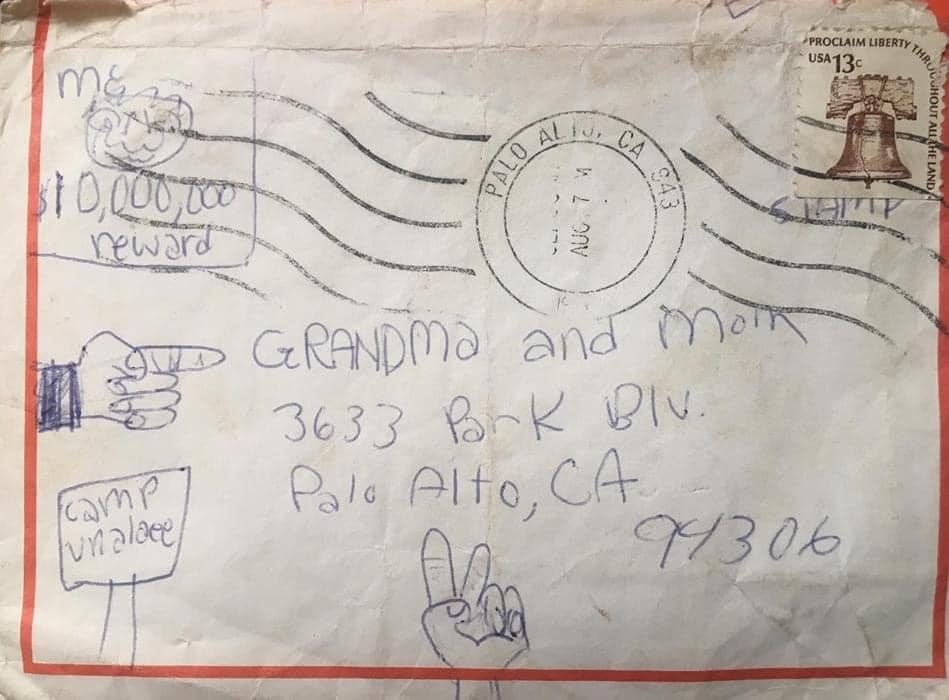 ME
$10,000,000
reward
PALO ALTO, CA 943
AUG 7 M
PROCLAIM LIBERTY THROUGHOUT ALL THE LAND
USA 13c
STAMP
GRANDMa and MOM
3633 Park Blv.
Palo Alto, CA
94306
camp
unalaee